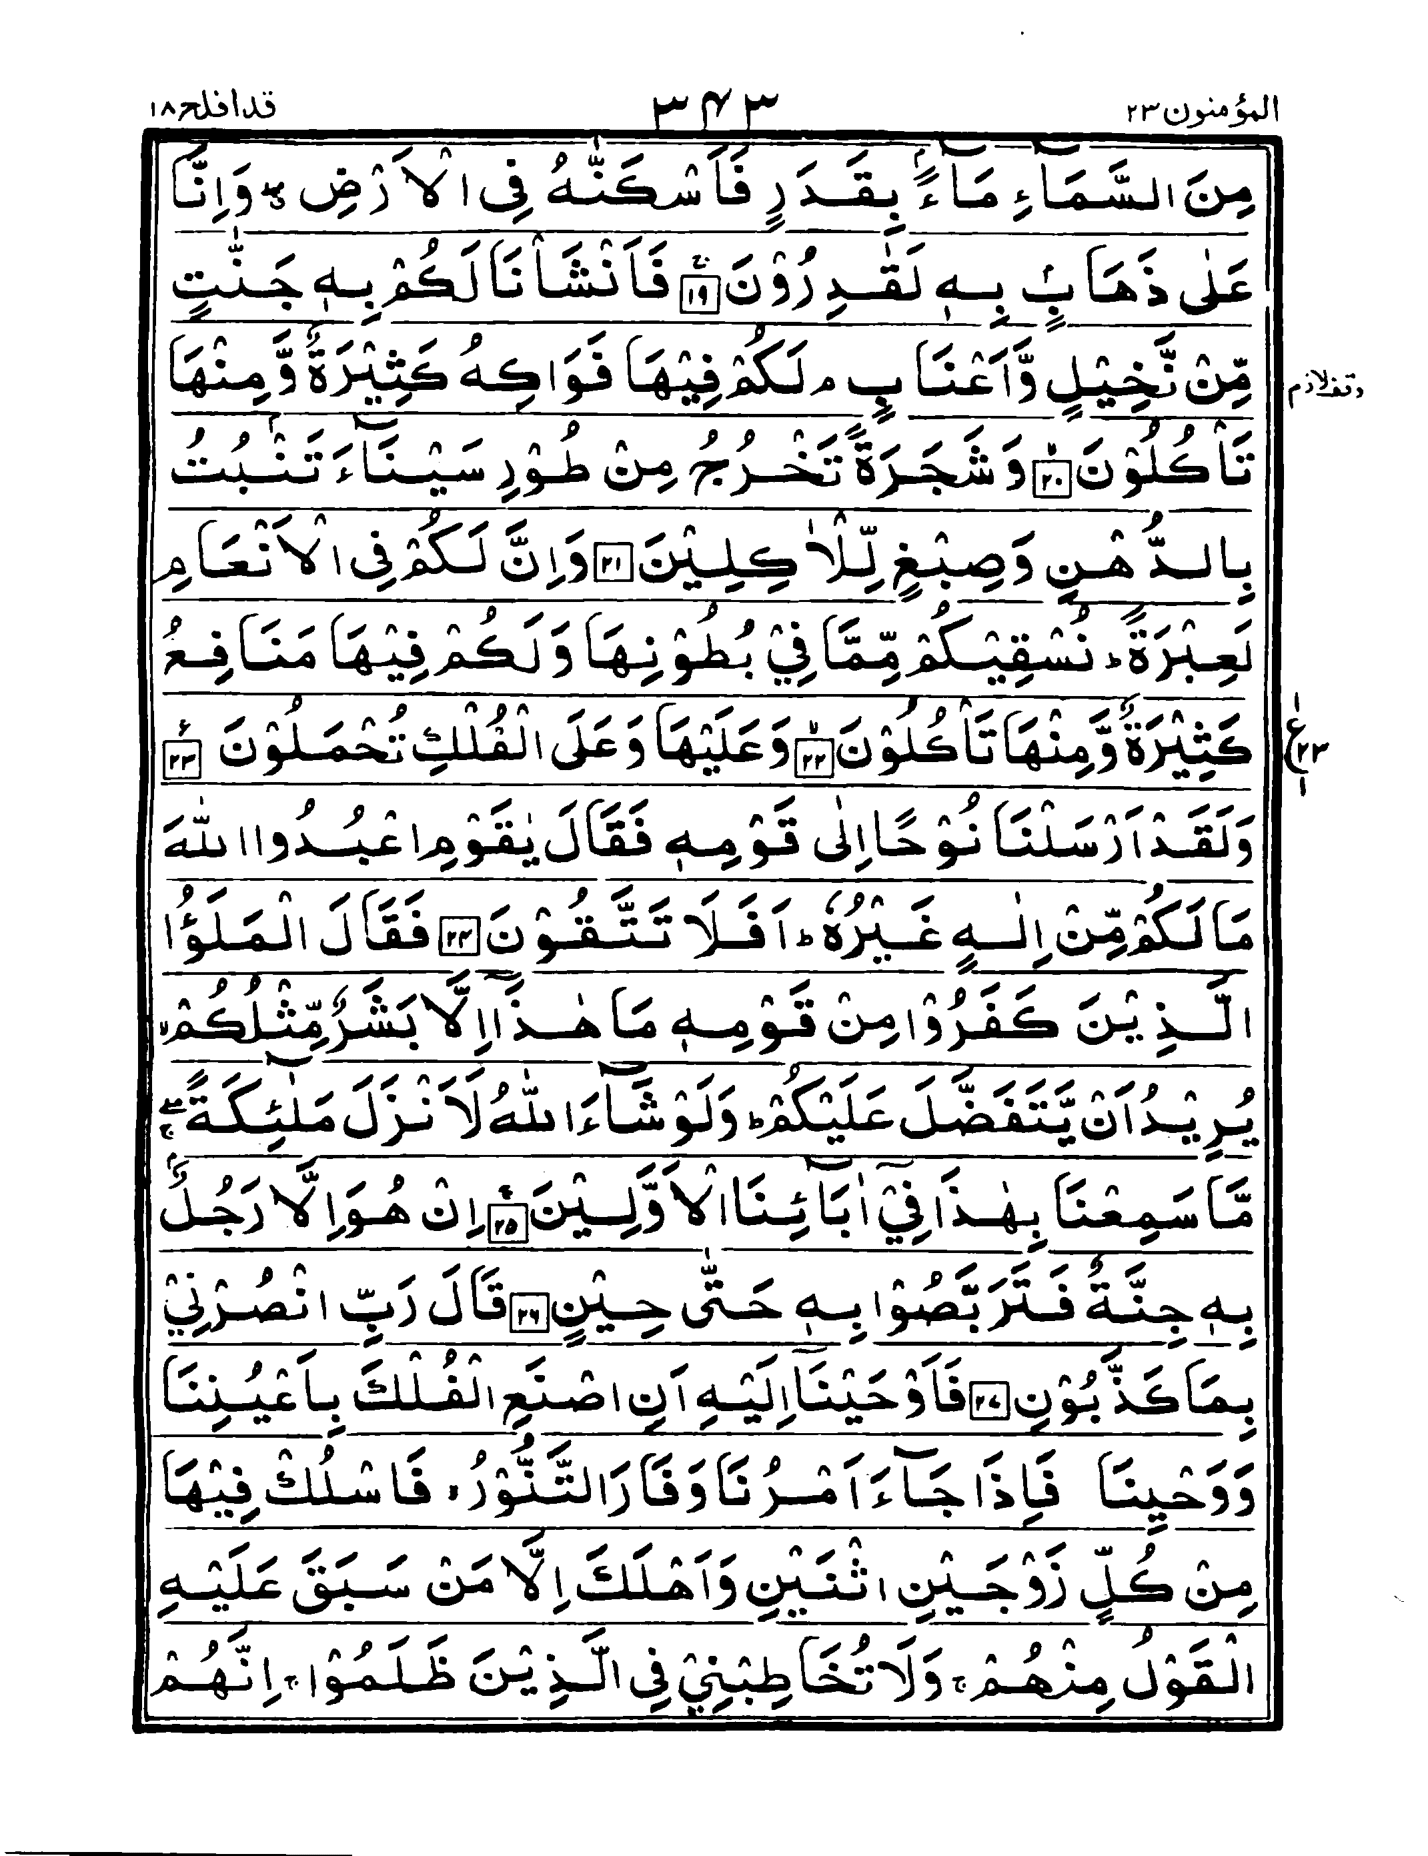 المؤمنون ٢٣
٣٤٣
قد افلح ١٨
مِنَ السَّمَآءِ مَآءًۢ بِقَدَرٍ فَاَسْكَنّٰهُ فِى الْاَرْضِ ۖۗ وَاِنَّا
عَلٰى ذَهَابٍۭ بِهٖ لَقٰدِرُوْنَ ۚ ١٩ فَاَنْشَاْنَا لَكُمْ بِهٖ جَنّٰتٍ
مِّنْ نَّخِيْلٍ وَّاَعْنَابٍ ۘ لَكُمْ فِيْهَا فَوَاكِهُ كَثِيْرَةٌ وَّمِنْهَا
وقف لازم
تَاْكُلُوْنَ ۙ ٢٠ وَشَجَرَةً تَخْرُجُ مِنْ طُوْرِ سَيْنَآءَ تَنْۢبُتُ
بِالدُّهْنِ وَصِبْغٍ لِّلْاٰكِلِيْنَ ٢١ وَاِنَّ لَكُمْ فِى الْاَنْعَامِ
لَعِبْرَةً ؕ نُسْقِيْكُمْ مِّمَّا فِيْ بُطُوْنِهَا وَلَكُمْ فِيْهَا مَنَافِعُ
كَثِيْرَةٌ وَّمِنْهَا تَاْكُلُوْنَ ۙ ٢٢ وَعَلَيْهَا وَعَلَى الْفُلْكِ تُحْمَلُوْنَ ٢٣
١ ع ٢٣ ١
وَلَقَدْ اَرْسَلْنَا نُوْحًا اِلٰى قَوْمِهٖ فَقَالَ يٰقَوْمِ اعْبُدُوا اللّٰهَ
مَا لَكُمْ مِّنْ اِلٰهٍ غَيْرُهٗ ؕ اَفَلَا تَتَّقُوْنَ ٢٣ فَقَالَ الْمَلَؤُا
الَّذِيْنَ كَفَرُوْا مِنْ قَوْمِهٖ مَا هٰذَآ اِلَّا بَشَرٌ مِّثْلُكُمْ ۙ
يُرِيْدُ اَنْ يَّتَفَضَّلَ عَلَيْكُمْ ؕ وَلَوْ شَآءَ اللّٰهُ لَاَنْزَلَ مَلٰٓئِكَةً ۖۚ
مَّا سَمِعْنَا بِهٰذَا فِيْٓ اٰبَآئِنَا الْاَوَّلِيْنَ ۚ ٢٥ اِنْ هُوَ اِلَّا رَجُلٌۢ
بِهٖ جِنَّةٌ فَتَرَبَّصُوْا بِهٖ حَتّٰى حِيْنٍ ٢٦ قَالَ رَبِّ انْصُرْنِيْ
بِمَا كَذَّبُوْنِ ٢٧ فَاَوْحَيْنَآ اِلَيْهِ اَنِ اصْنَعِ الْفُلْكَ بِاَعْيُنِنَا
وَوَحْيِنَا فَاِذَا جَآءَ اَمْرُنَا وَفَارَ التَّنُّوْرُ ۙ فَاسْلُكْ فِيْهَا
مِنْ كُلٍّ زَوْجَيْنِ اثْنَيْنِ وَاَهْلَكَ اِلَّا مَنْ سَبَقَ عَلَيْهِ
الْقَوْلُ مِنْهُمْ ۚ وَلَا تُخَاطِبْنِيْ فِى الَّذِيْنَ ظَلَمُوْا ۚ اِنَّهُمْ